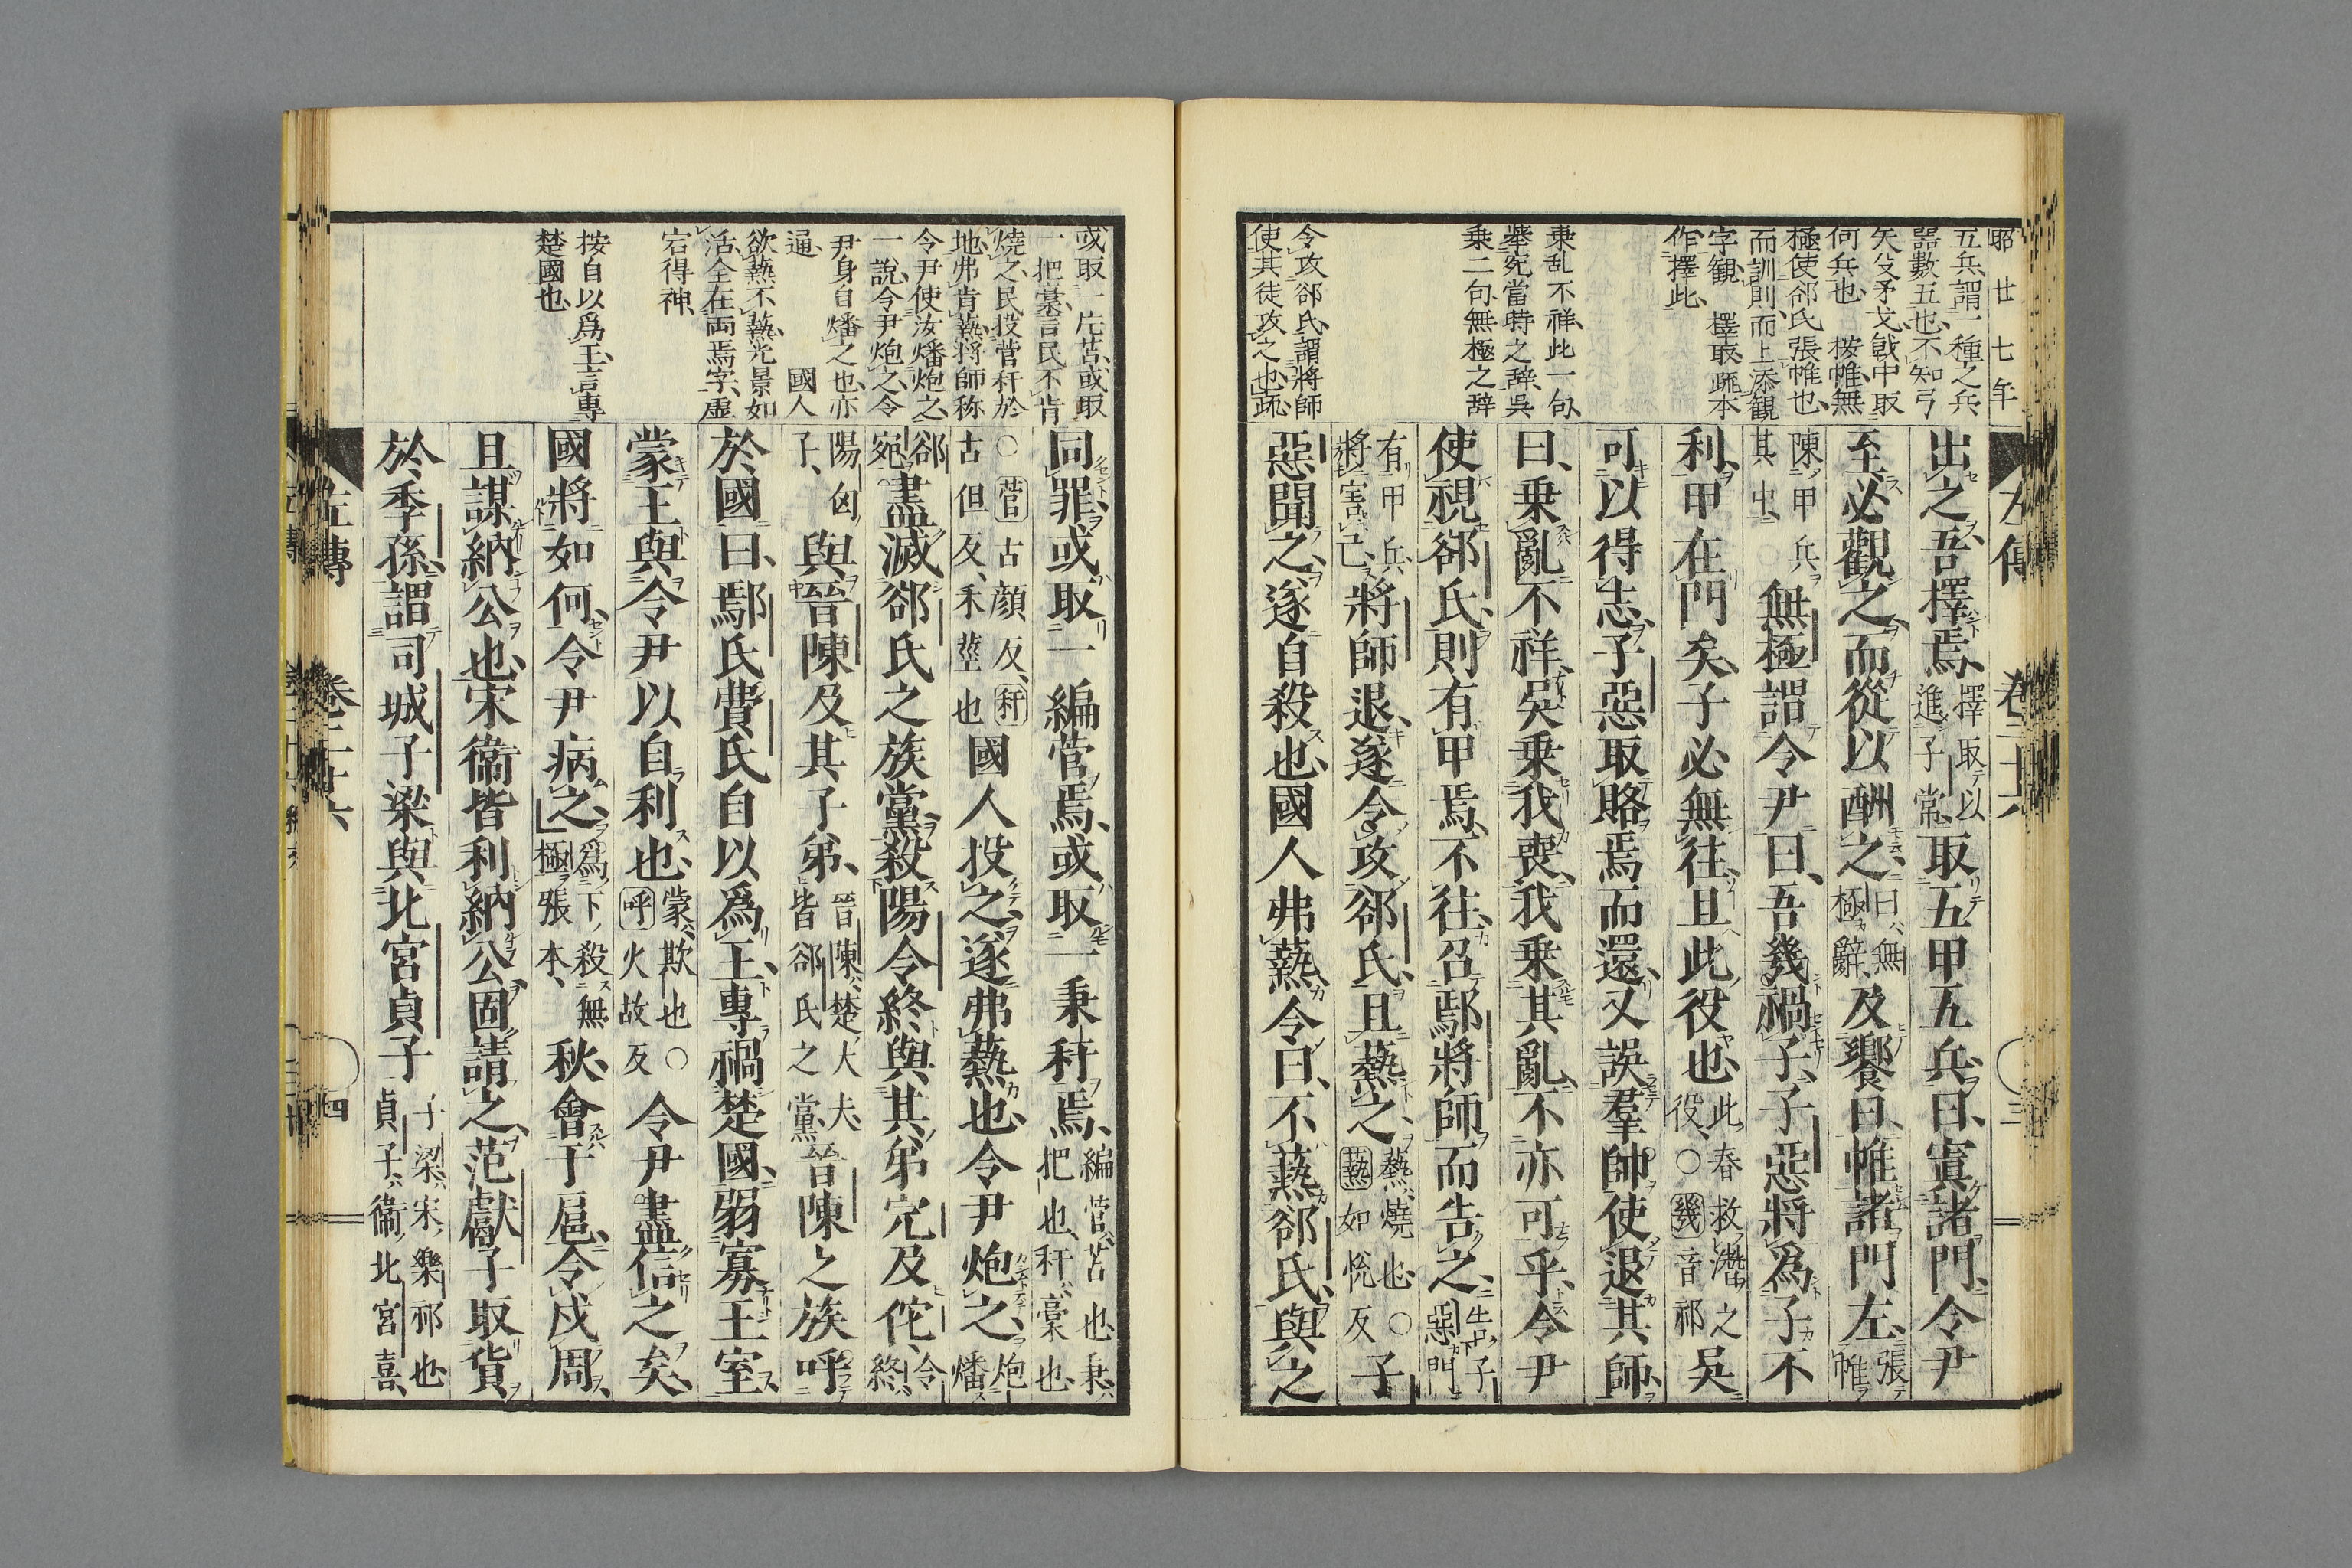 昭廿七年
五兵、謂一種之兵
器數五也、不知弓
矢殳矛戈戟中取
何兵也　按帷無
極使郤氏張帷也、
而訓則、而上添観
字観、　擇取疏本
作擇此、
乗乱不祥、此一句、
擧宛當時之辞、呉
乗二句、無極之辞
令攻郤氏、謂將師
使其徒攻之也疏
出之、吾擇焉、
擇取以
進子常、
取五甲五兵、曰、寘諸門、令尹
至、必觀之、而從以酬之、
曰、無
極辭、
及饗日、帷諸門左、
張帷
陳甲兵
其中、
無極謂令尹曰、吾幾禍子、子惡將爲子不
利、甲在門矣、子必無往、且此役也、
此春救潛之
役、○幾音祁
吳
可以得志、子惡取賂焉而還、又誤羣帥、使退其師、
曰、乗亂不祥、吳乗我喪、我乗其亂、不亦可乎、令尹
使視郤氏、則有甲焉、不往、召鄢將師而告之、
告子
惡門
有甲兵、
將害己、
將師退、遂令攻郤氏、且爇之、
爇、燒也、○
爇如悅反
子
惡聞之、遂自殺也、國人弗爇、令曰、不爇郤氏、與之
左傳　卷二十六
或取一片苫、或取
一把稾、言民不肯
燒之、民投菅秆於
地、弗肯爇、將師称
令尹使汝燔炮之、
一說、令尹炮之、令
尹身自燔之也、亦
逼、　國人
欲爇不爇、光景如
活、全在両焉字、虚
宕得神、
按自以爲王、言專
楚國也、
同罪、或取一編菅焉、或取一秉秆焉、
編菅、苫也、秉、
把也、秆、稾也、
○菅古顔反、秆
古但反、禾莖也
國人投之、遂弗爇也、令尹炮之、
炮
燔
郤
宛
盡滅郤氏之族黨、殺陽令終、與其弟完及佗、
令
終、
陽匄
子、
與晉陳及其子弟、
晉陳、楚大夫、
皆郤氏之黨、
晉陳之族呼
於國曰、鄢氏費氏自以爲王、專禍楚國、弱寡王室、
蒙王與令尹以自利也、
蒙、欺也○
呼、火故反
令尹盡信之矣、
國將如何、令尹病之、
爲下殺無
極張本、
秋、會于扈、令戍周、
且謀納公也、宋衞皆利納公、固請之、范獻子取貨
於季孫、謂司城子梁與北宮貞子
子梁、宋樂祁也、
貞子、衞北宮喜、
左傳　卷二十六　四